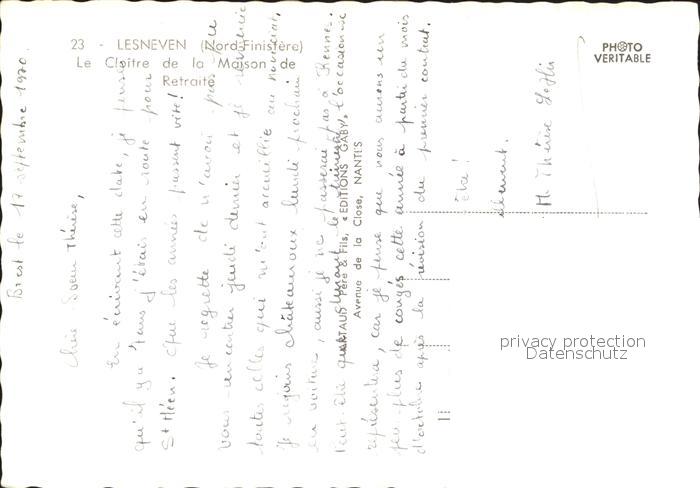 23 - LESNEVEN (Nord-Finistère)
Le Cloître de la Maison de
Retraite
PHOTO
VERITABLE
ARTAUD Père & Fils, « EDITIONS GABY »
Avenue de la Close, NANTES
Brest le 17 septembre 1970.
Chère Soeur Thérèse,
En écrivant cette date, je pense
qu'il y a 4 ans j'étais en route pour
St Méen. Que les années passent vite!
Je regrette de n'avoir pas pu
vous rencontrer jeudi dernier et je remercie
toutes celles qui m'ont accueillie au noviciat.
Je rejoins Châteauroux lundi prochain
en voiture, aussi je ne passerai pas à Rennes.
Peut-être que durant le l'occasion se
représentera, car je pense que nous aurons un
peu plus de congés cette année à partir du mois
d'octobre après la révision du premier contrat.
M. Thérèse
privacy protection
Datenschutz